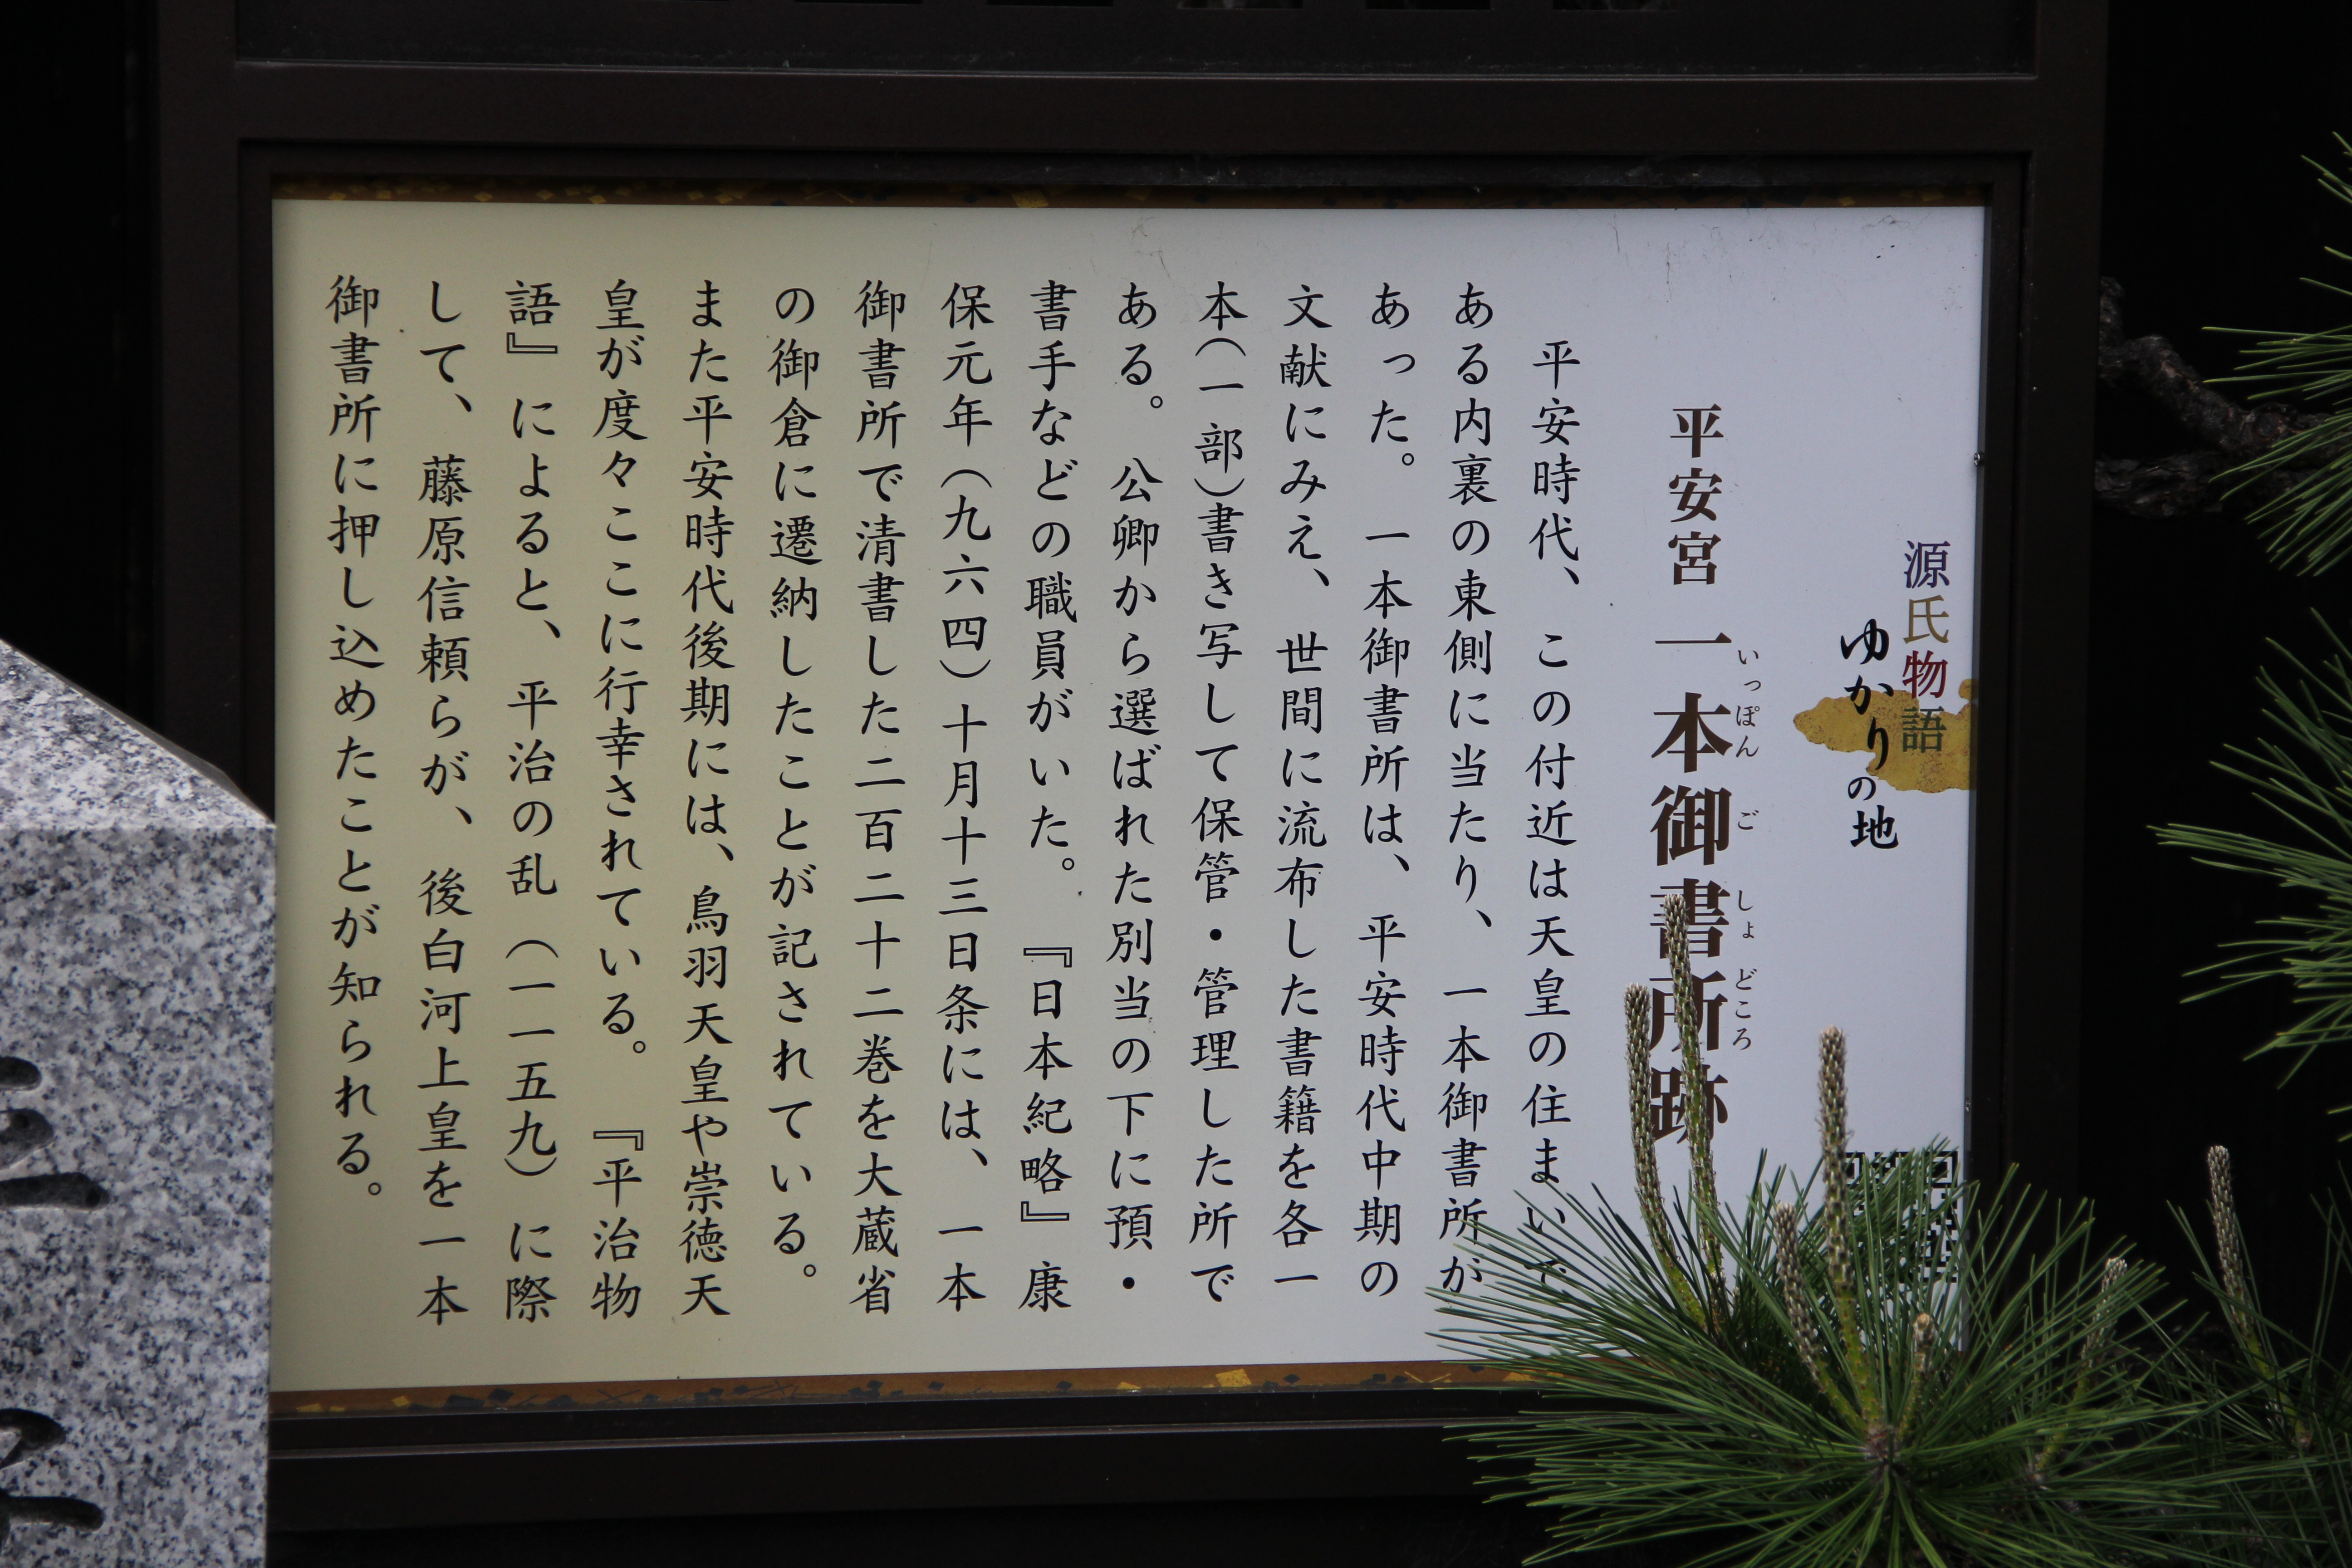 源氏物語
ゆかりの地
平安宮 一本御書所跡
いっぽん ご しょ どころ
平安時代、この付近は天皇の住まいで
ある内裏の東側に当たり、一本御書所が
あった。一本御書所は、平安時代中期の
文献にみえ、世間に流布した書籍を各一
本(一部)書き写して保管・管理した所で
ある。公卿から選ばれた別当の下に預・
書手などの職員がいた。『日本紀略』康
保元年(九六四)十月十三日条には、一本
御書所で清書した二百二十二巻を大蔵省
の御倉に遷納したことが記されている。
また平安時代後期には、鳥羽天皇や崇徳天
皇が度々ここに行幸されている。『平治物
語』によると、平治の乱(一一五九)に際
して、藤原信頼らが、後白河上皇を一本
御書所に押し込めたことが知られる。